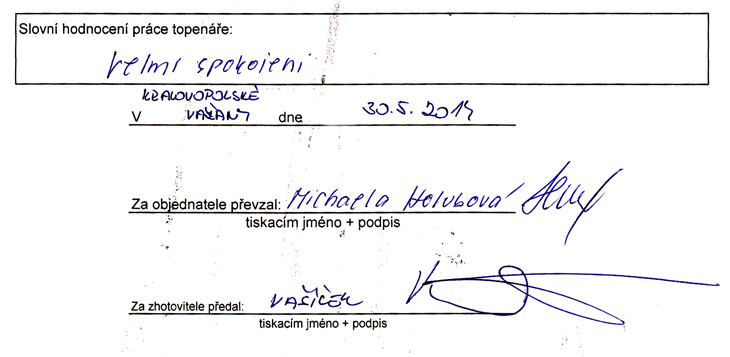 Slovní hodnocení práce topenáře:
velmi spokojeni
KRALOVOPOLSKÉ
V VAŽANY dne 30.5.2014
Za objednatele převzal: Michaela Holubová
tiskacím jméno + podpis
Za zhotovitele předal: VAŠÍČEK
tiskacím jméno + podpis